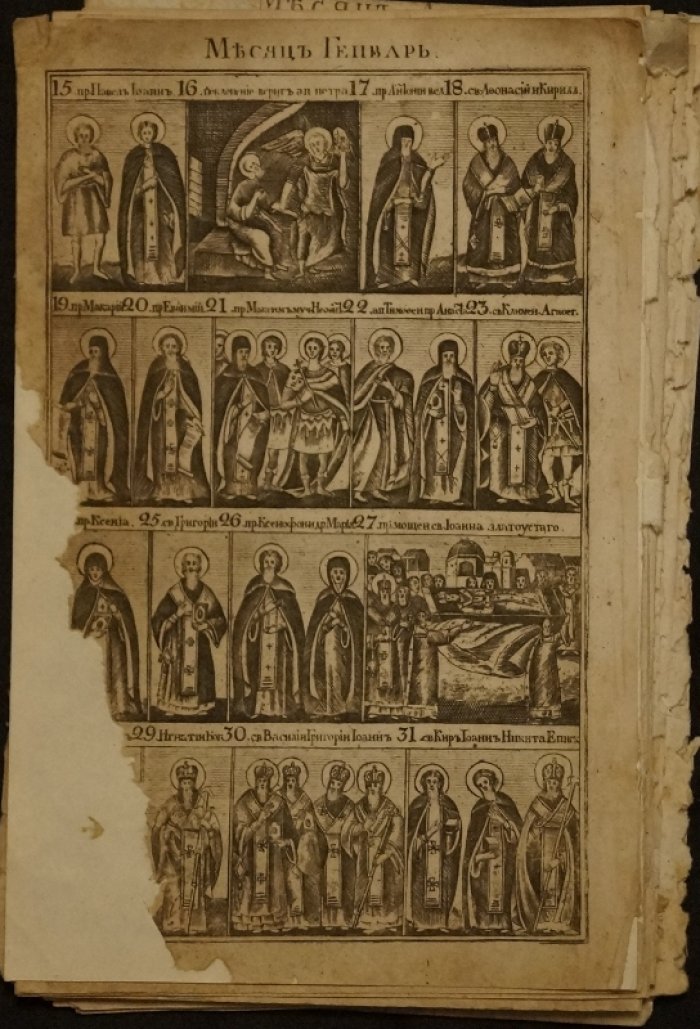 Мѣсяцъ Генварь.
15. пр Павелъ Іоаннъ 16. веригъ ап петра 17. пр Антоній вел 18. св Афонасій и Кирилл.
19. пр Макарій 20. пр Евѳимій. 21. пр Маѯимъ муч Неоѳи 22. ап Тимоѳеи пр Анас 23. св Климен. Агаѳег.
пр Ксенія. 25. св Григоріи 26. пр Ксенофони др Марія 27. пр мощеи св Іоанна златоустаго.
29. Игнатіи 30. св Василіи Григоріи Іоаннъ 31. св Киръ Іоаннъ Никита Епис